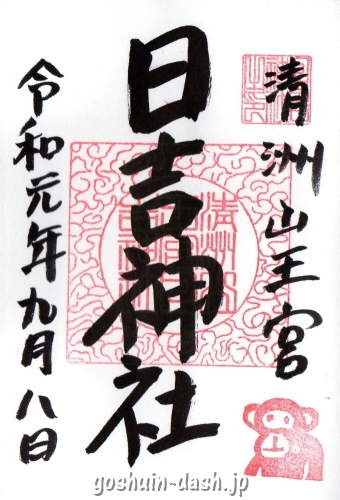 清洲山王宮
日吉神社
令和元年九月八日
goshuin-dash.jp